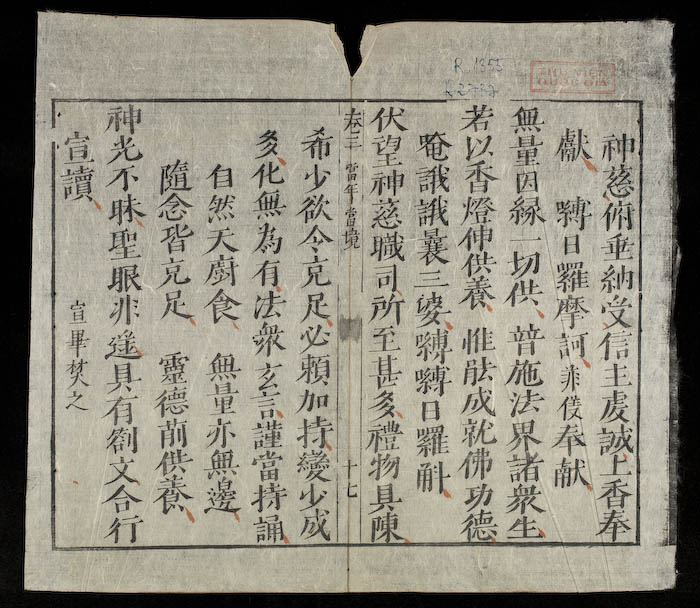 神慈俯垂納受信主虔誠上香奉
獻 嚩日羅摩訶 斛 奉献
無量因縁一切供 普施法界諸衆生
若以香燈伸供養 惟祈成就佛功德
唵誐誐曩三婆嚩嚩日羅斛
伏望神慈職司所至甚多禮物具陳
水三 當年當境 十七
希少欲令充足必頼加持變少成
多化無為有法衆玄言謹當持誦
自然天廚食 無量亦無邊
隨念皆充足 靈德前供養
神光不昧聖眼非遙具有劄文合行
宣讀 宣畢焚之
R.1355
R 2737
THU VIEN
QUOC GIA